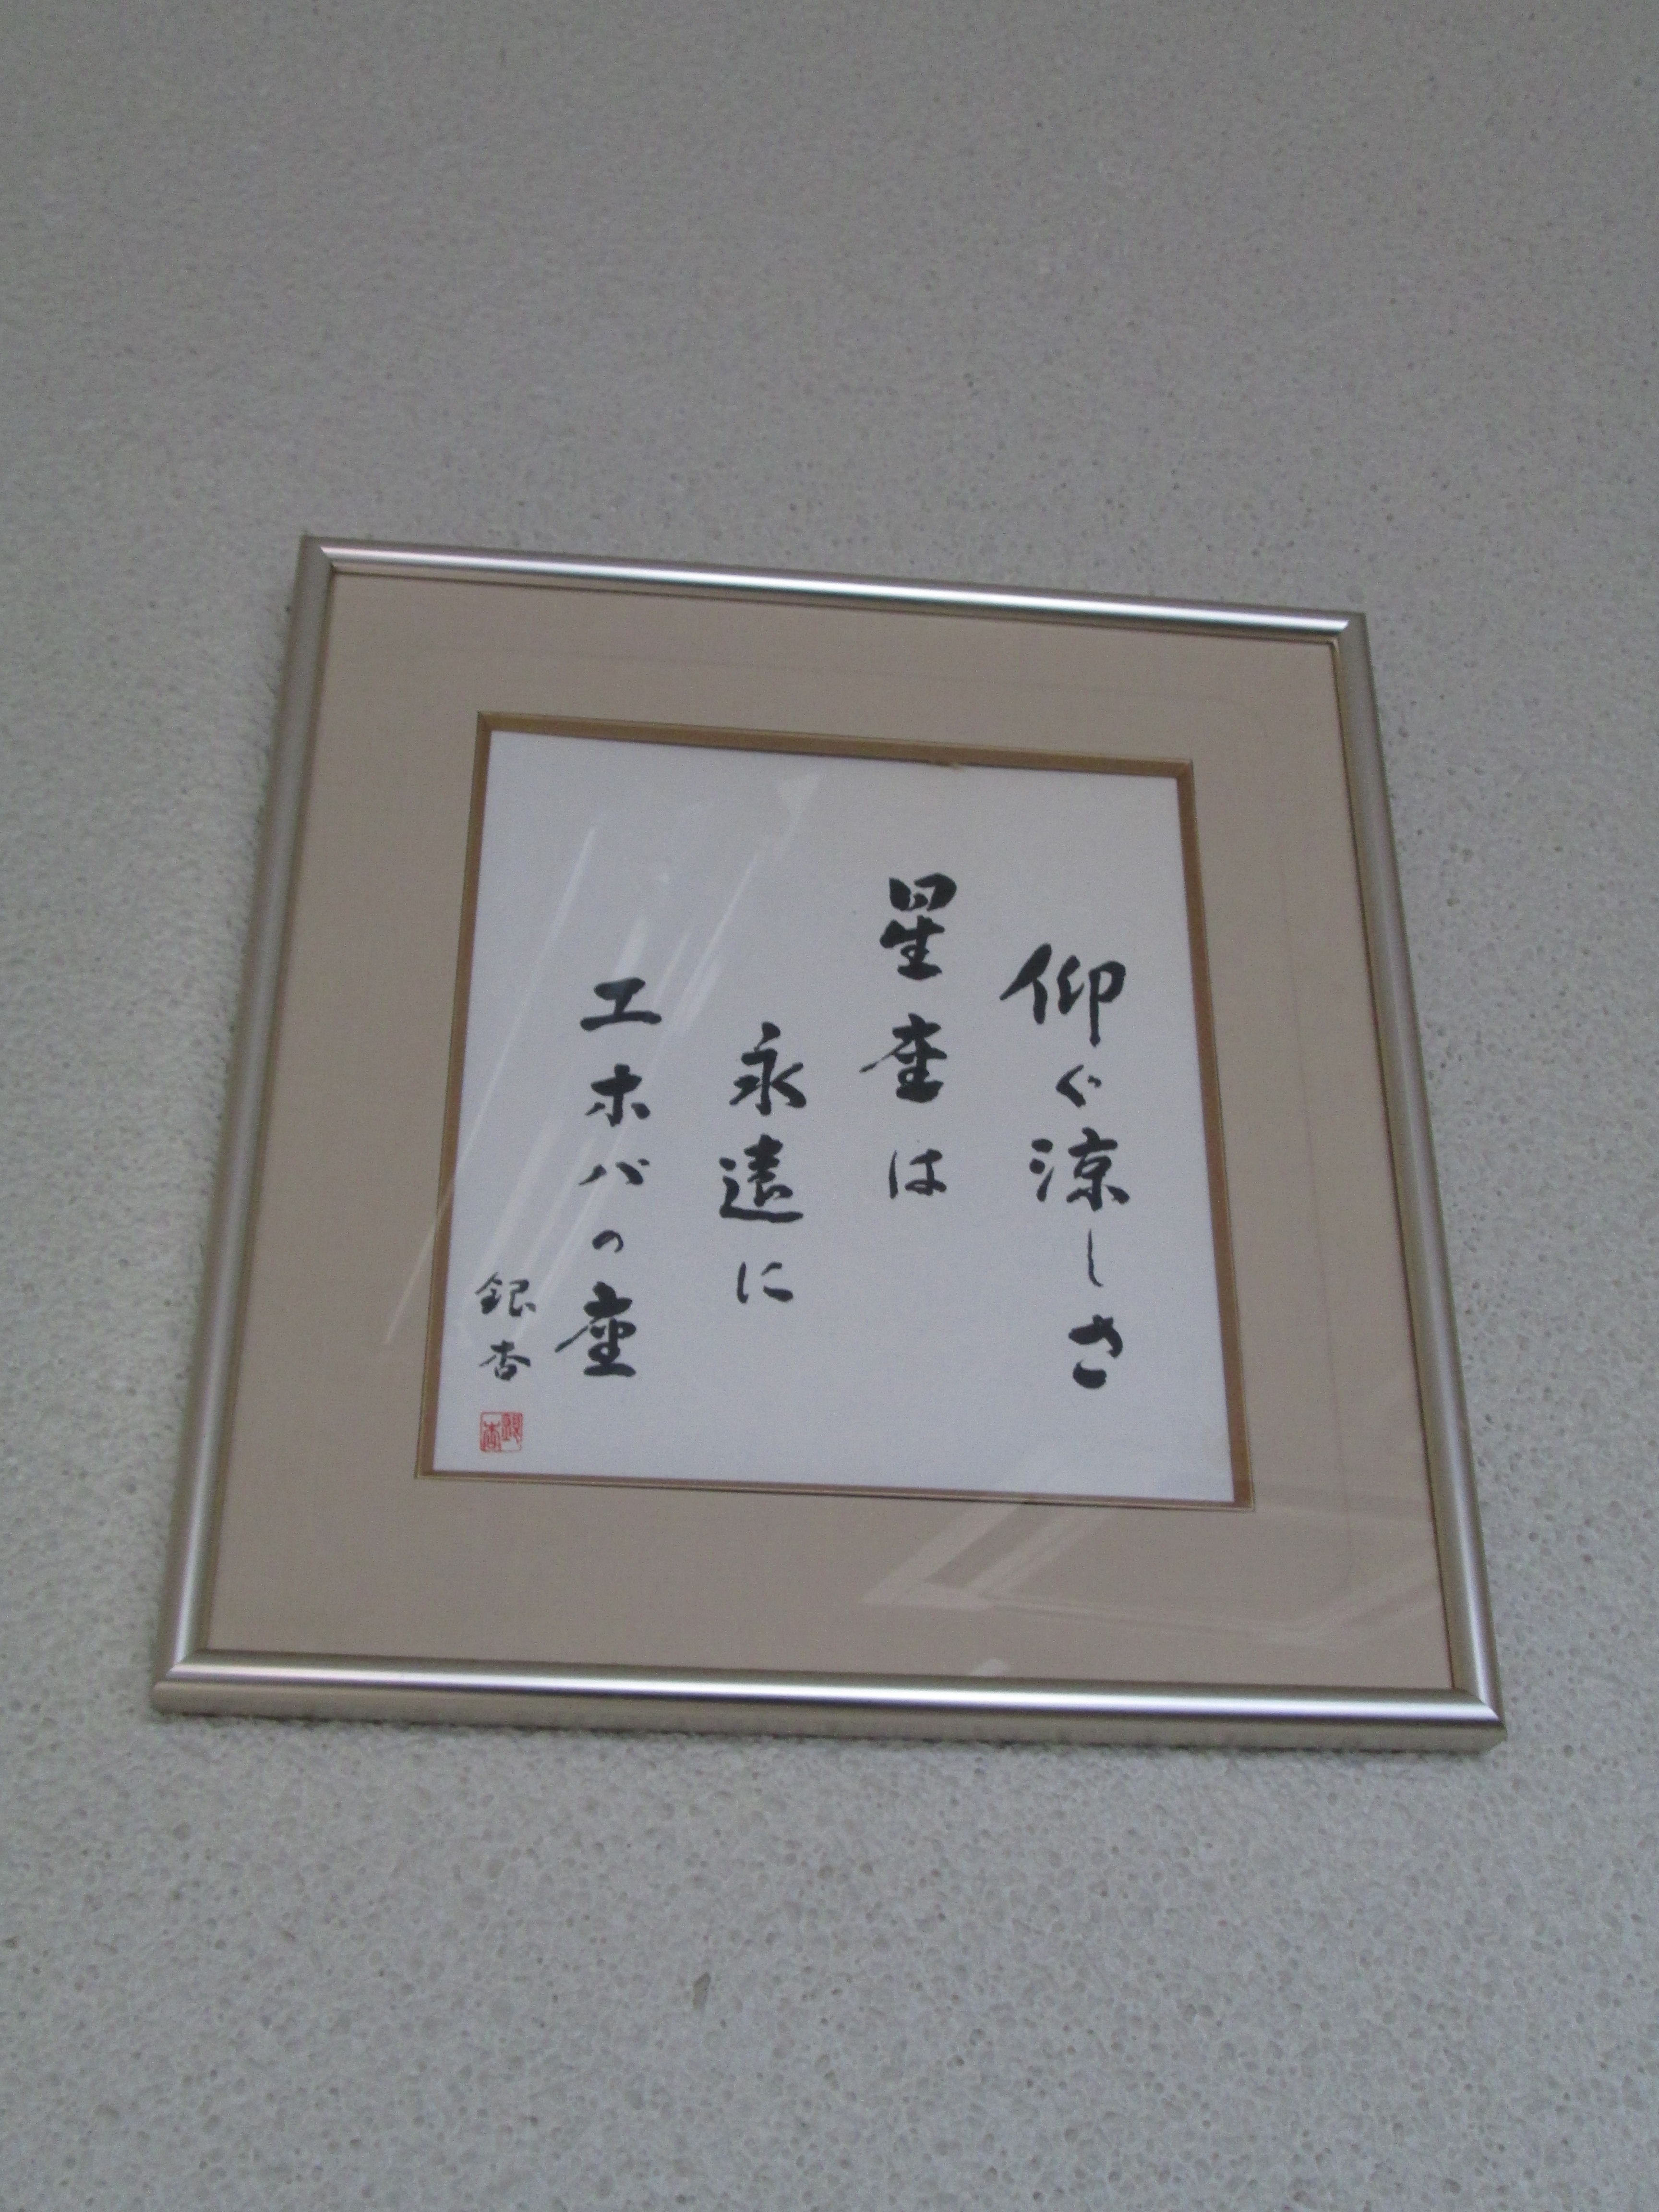 仰ぐ涼しさ
星座は
永遠に
エホバの座
銀杏
銀杏